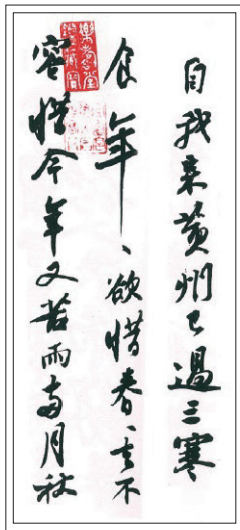 自我來黃州已過三寒
食年、欲惜春、去不
容惜今年又苦雨兩月秌